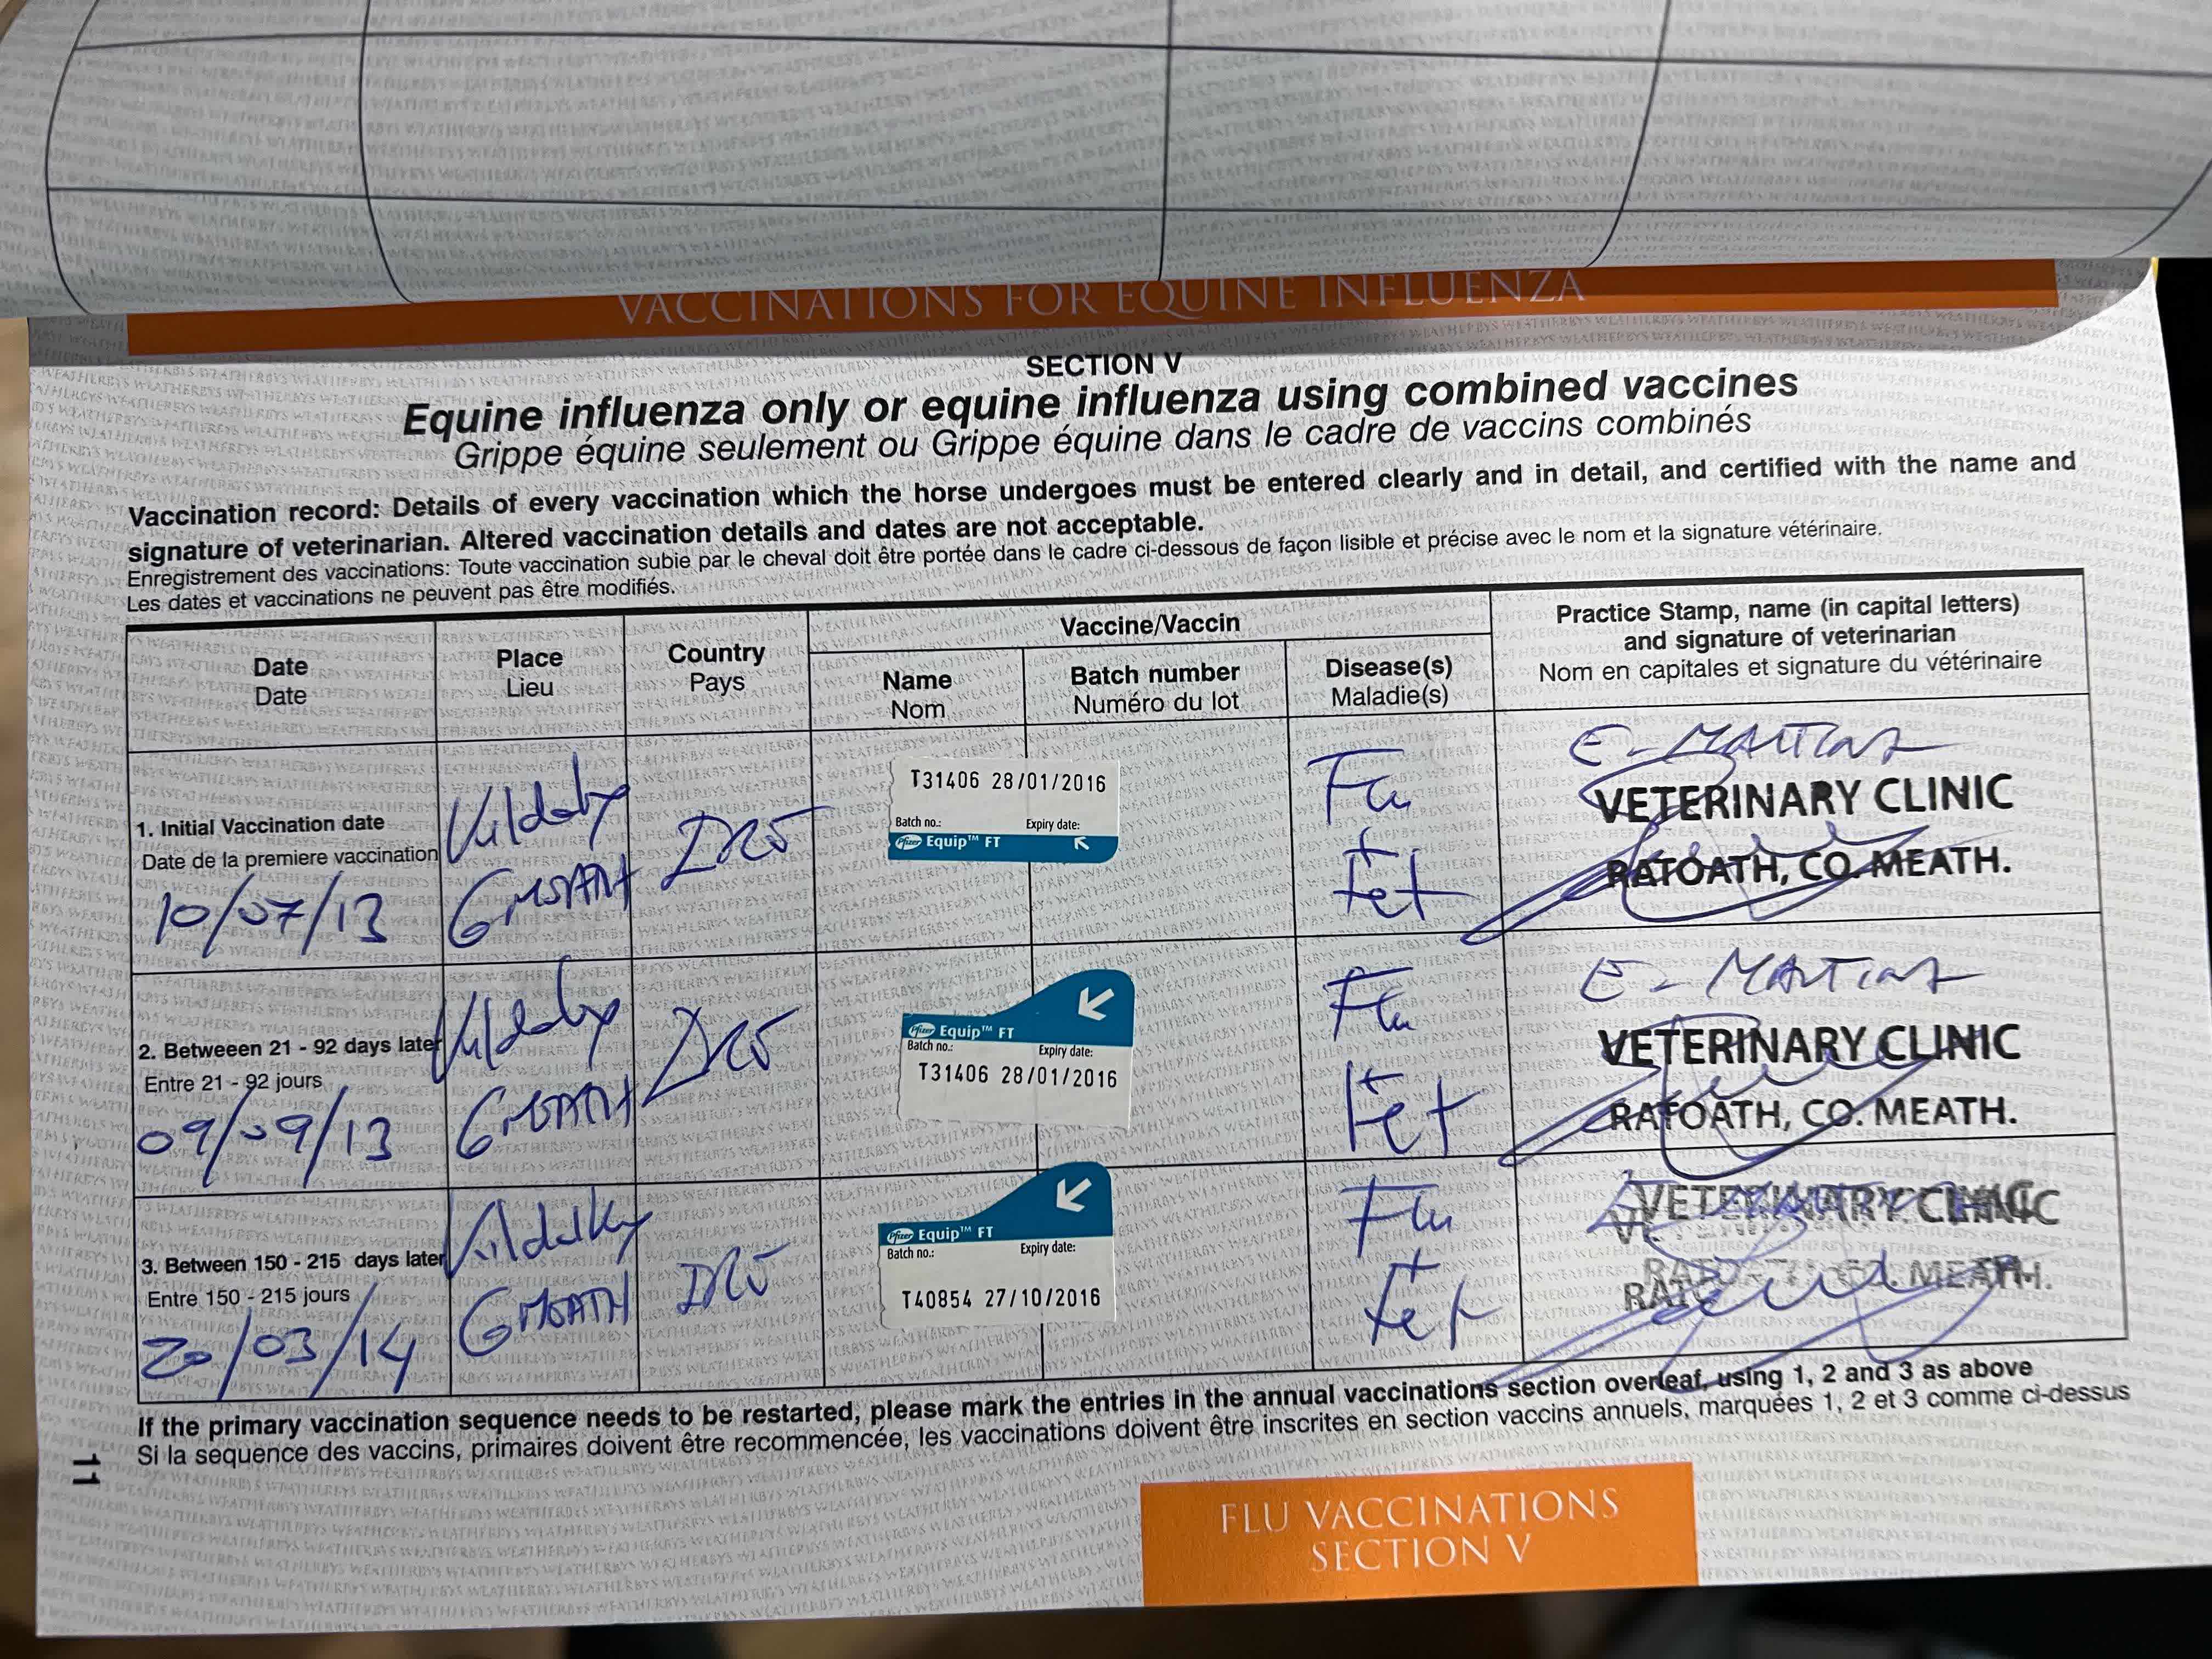 VACCINATIONS FOR EQUINE INFLUENZA
SECTION V
Equine influenza only or equine influenza using combined vaccines
Grippe équine seulement ou Grippe équine dans le cadre de vaccins combinés
Vaccination record: Details of every vaccination which the horse undergoes must be entered clearly and in detail, and certified with the name and
signature of veterinarian. Altered vaccination details and dates are not acceptable.
Enregistrement des vaccinations: Toute vaccination subie par le cheval doit être portée dans le cadre ci-dessous de façon lisible et précise avec le nom et la signature vétérinaire.
Les dates et vaccinations ne peuvent pas être modifiés.
Date
Date
Place
Lieu
Country
Pays
Vaccine/Vaccin
Name
Nom
Batch number
Numéro du lot
Disease(s)
Maladie(s)
Practice Stamp, name (in capital letters)
and signature of veterinarian
Nom en capitales et signature du vétérinaire
1. Initial Vaccination date
Date de la premiere vaccination
10/07/13
Kildalky
Co MEATH
T31406 28/01/2016
Batch no.: Expiry date:
Pfizer Equip™ FT
Flu
+
tet
E. MARTIN
VETERINARY CLINIC
RATOATH, CO. MEATH.
2. Betweeen 21 - 92 days later
Entre 21 - 92 jours
09/09/13
Kildalky
Co MEATH
Pfizer Equip™ FT
Batch no.: Expiry date:
T31406 28/01/2016
Flu
+
tet
E. MARTIN
VETERINARY CLINIC
RATOATH, CO. MEATH.
3. Between 150 - 215 days later
Entre 150 - 215 jours
20/03/14
Kildalky
Co MEATH
Pfizer Equip™ FT
Batch no.: Expiry date:
T40854 27/10/2016
Flu
+
tet
VETERINARY CLINIC
RATOATH, CO. MEATH.
If the primary vaccination sequence needs to be restarted, please mark the entries in the annual vaccinations section overleaf, using 1, 2 and 3 as above
Si la sequence des vaccins, primaires doivent être recommencée, les vaccinations doivent être inscrites en section vaccins annuels, marquées 1, 2 et 3 comme ci-dessus
11
FLU VACCINATIONS
SECTION V